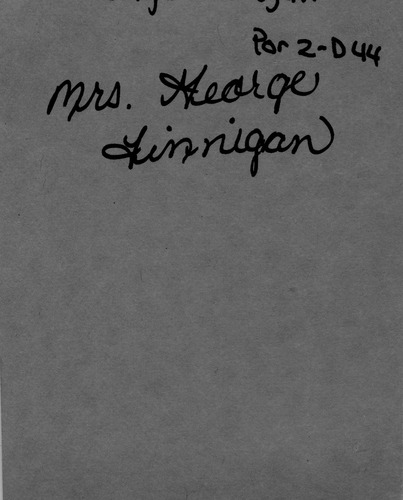 Por 2-D44
Mrs. George
Finnigan